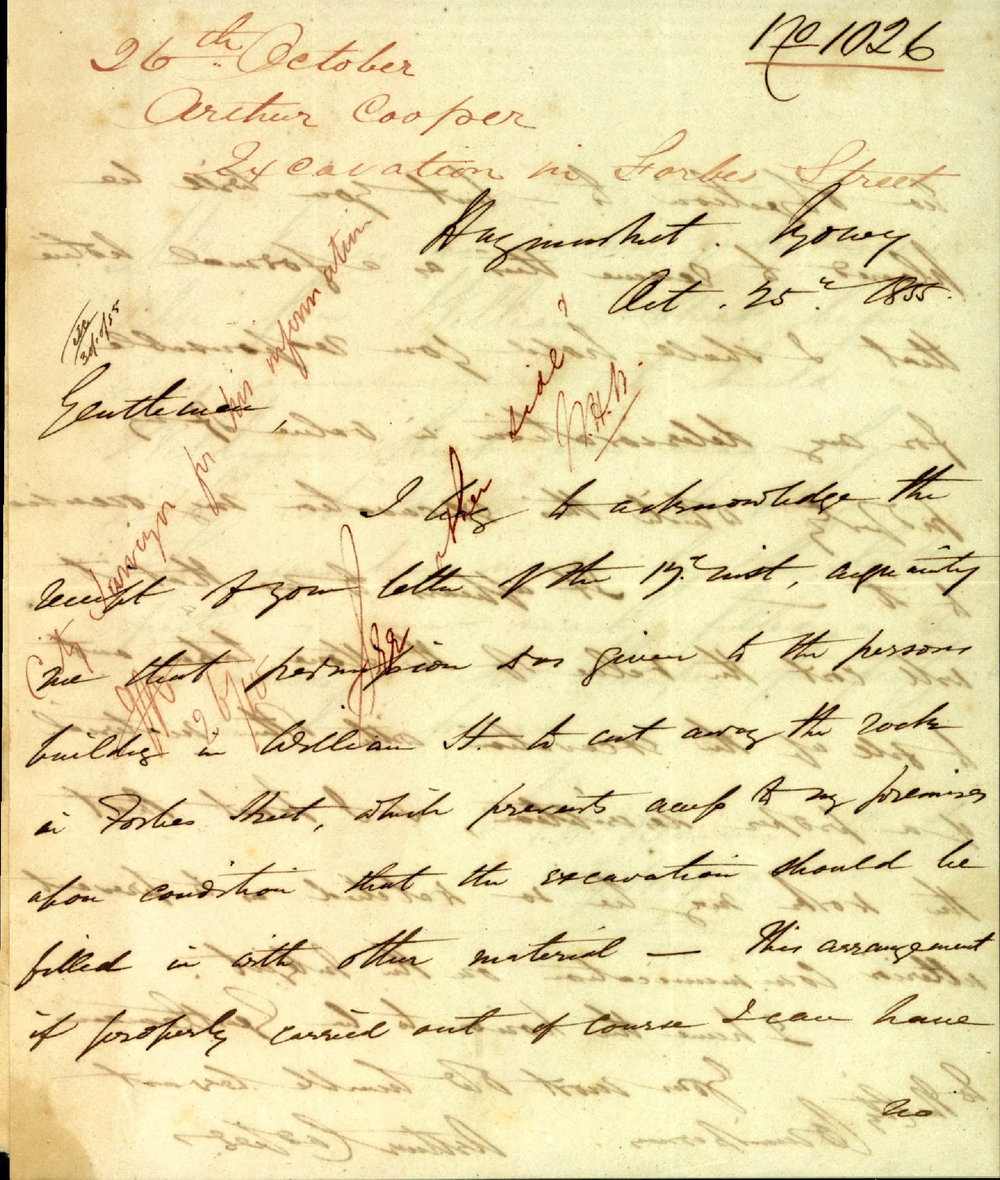 No 1026
26th October
Arthur Cooper
Excavation in Forbes Street
Haymarket. Sydney
Oct. 25th 1855.
30/10/55
Gentlemen,
I beg to acknowledge the
receipt of your letter of the 19th inst, acquainting
me that permission was given to the persons
building in William St. to cut away the rock
in Forbes Street, which prevents access to my premises
upon condition that the excavation should be
filled in with other material — This arrangement
if properly carried out of course I can have
no
City Surveyor for his information
See other side
W.H.B.